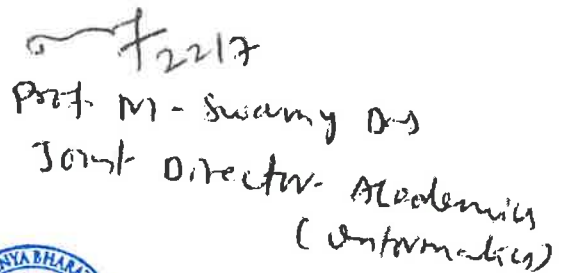 2217
Prof. M. Swamy Das
Joint Director Academics
(Informatics)
NYA BHARA